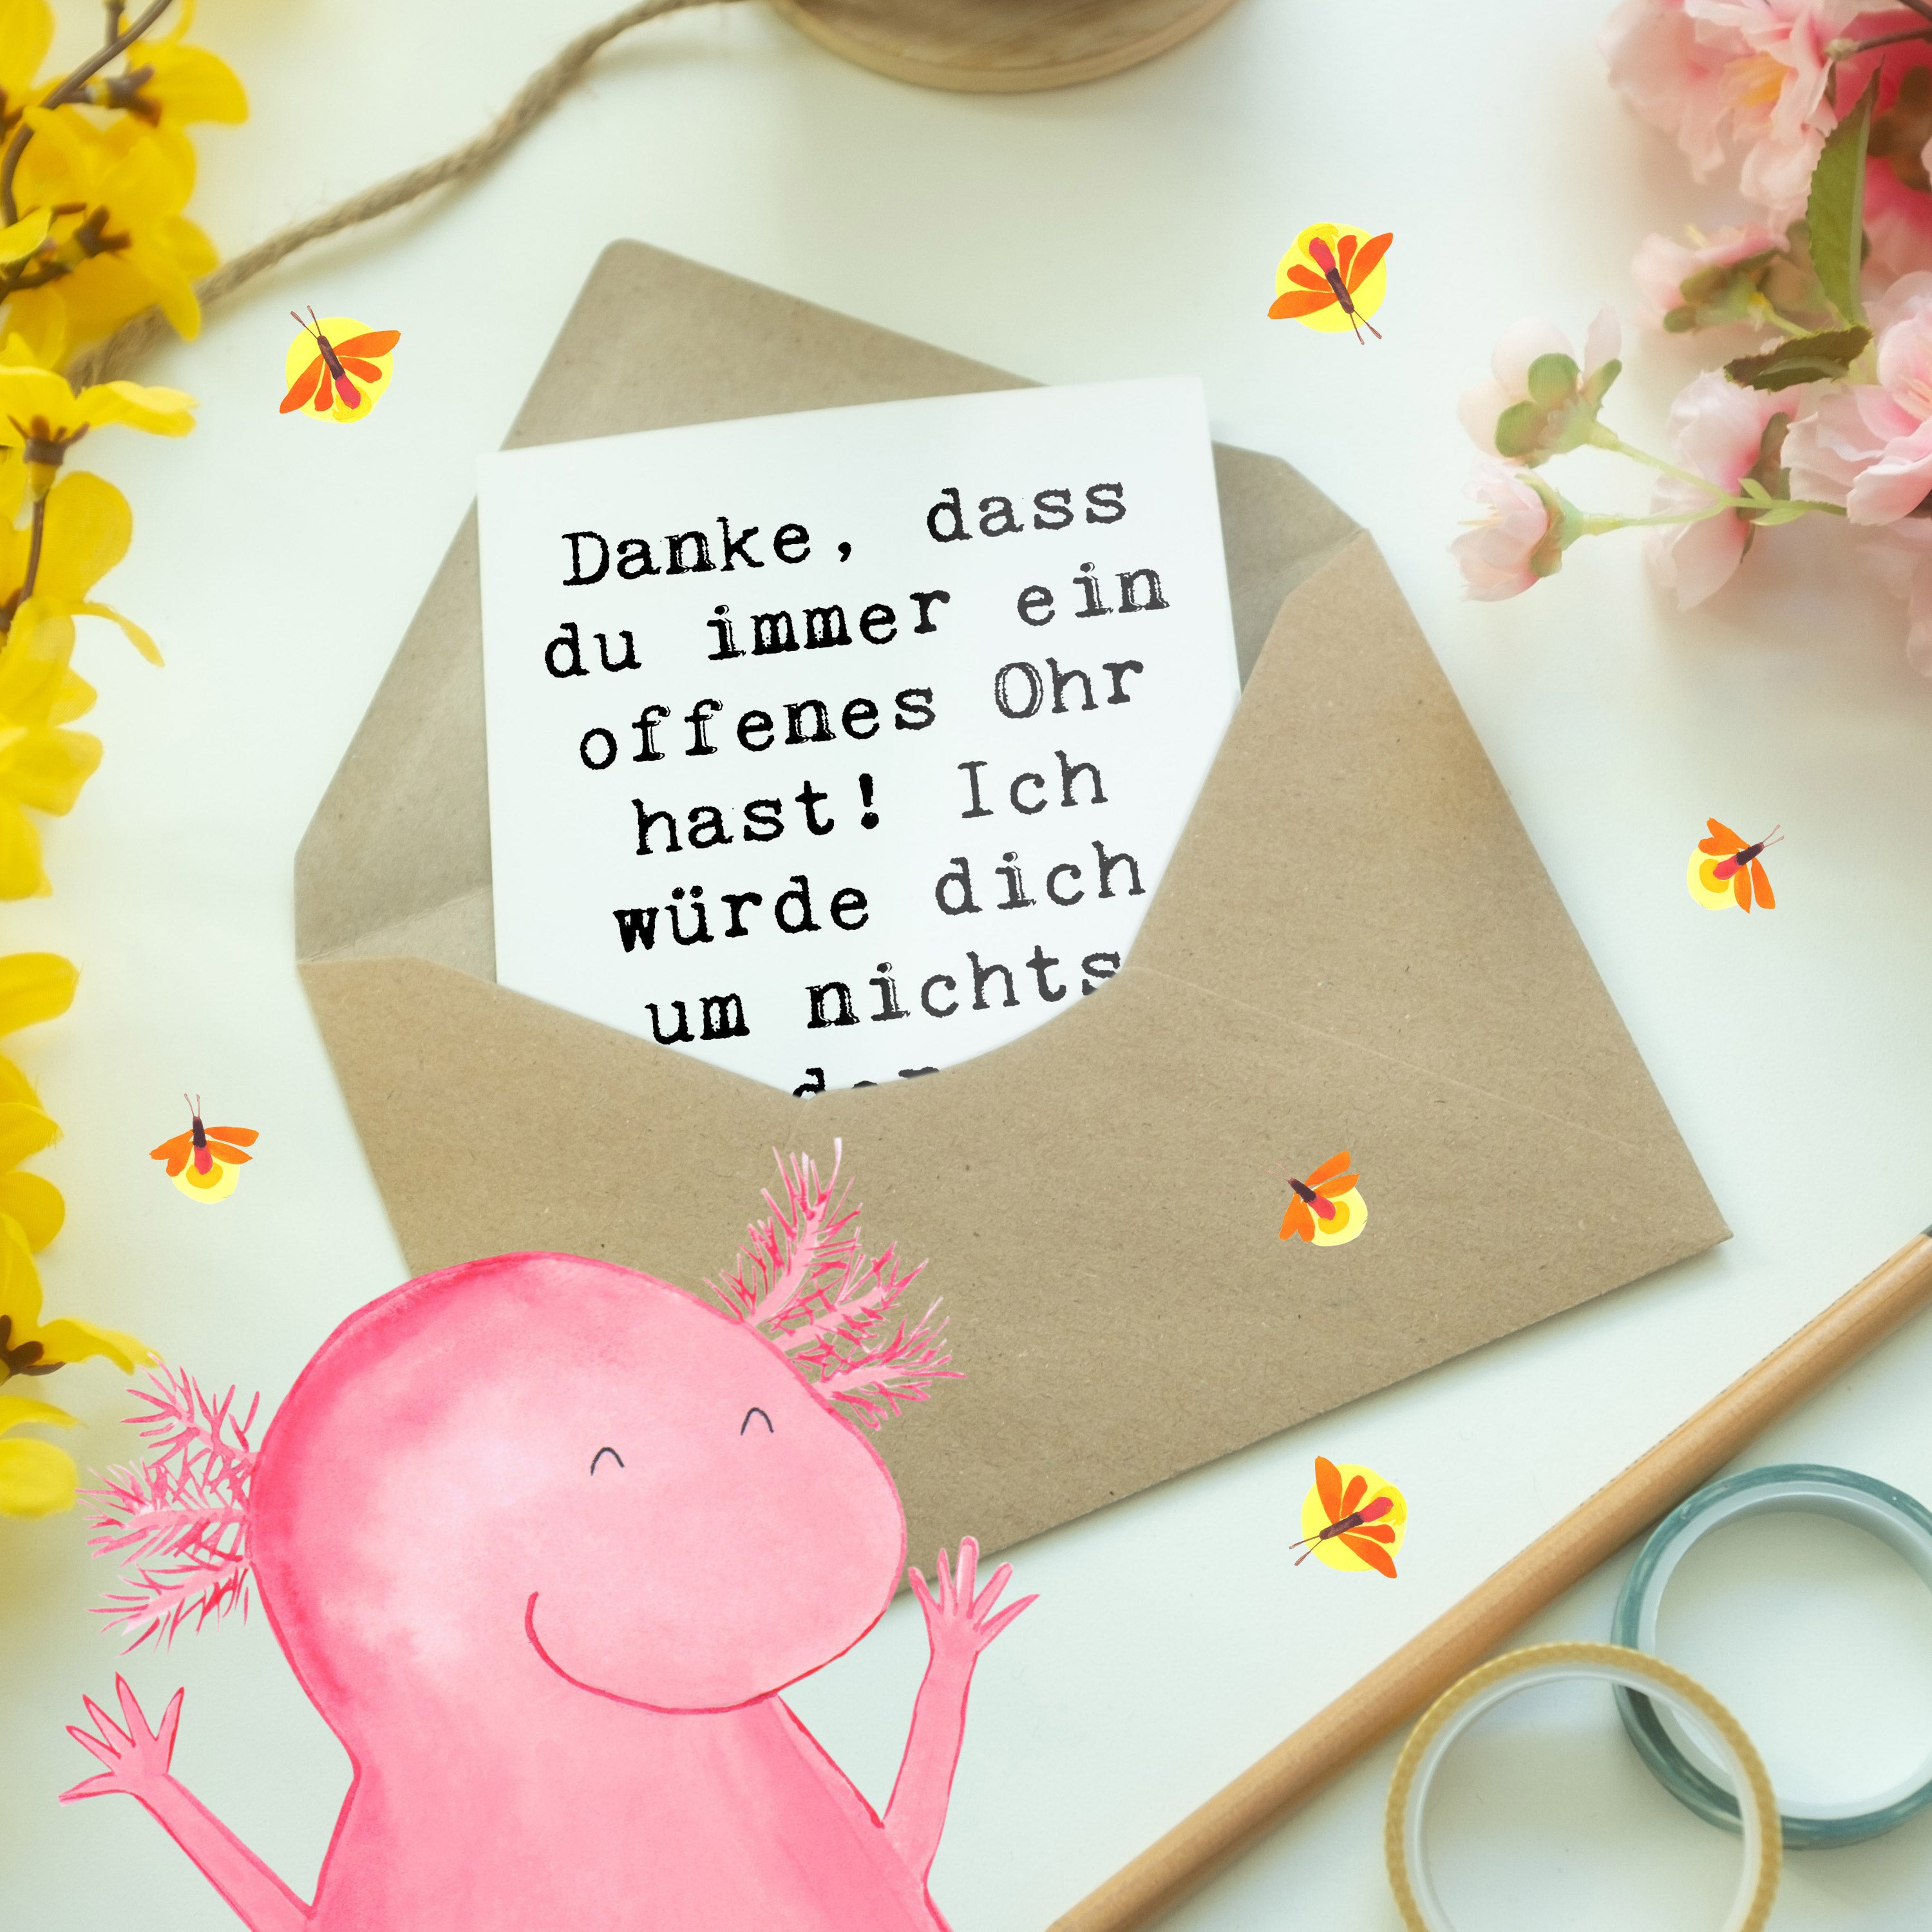 Danke, dass
du immer ein
offenes Ohr
hast! Ich
würde dich
um nichts